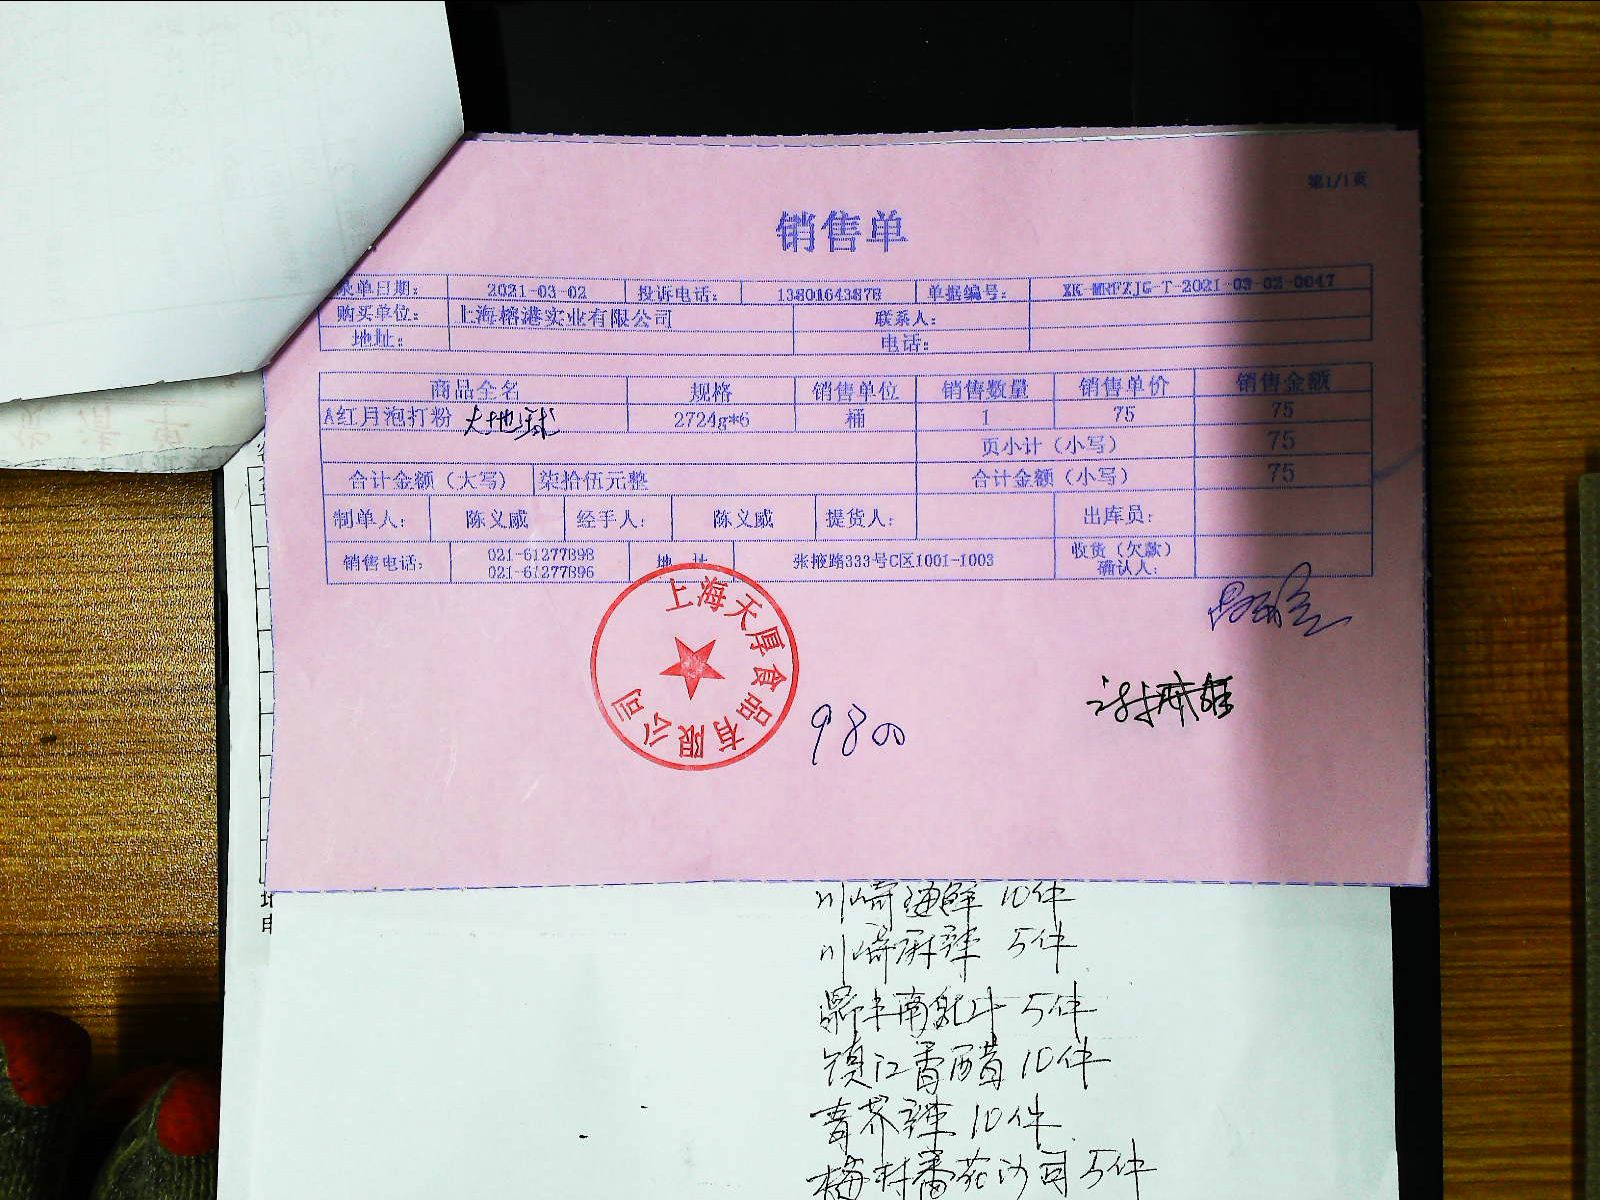 第1/1页
销售单
录单日期： 2021-03-02 投诉电话： 13801643878 单据编号： XK-MRFZJG-T-2021-03-02-0047
购买单位： 上海榕港实业有限公司 联系人：
地址： 电话：
商品全名 规格 销售单位 销售数量 销售单价 销售金额
A红月泡打粉 大地球 2724g*6 桶 1 75 75
页小计（小写） 75
合计金额（大写） 柒拾伍元整 合计金额（小写） 75
制单人： 陈义威 经手人： 陈义威 提货人： 出库员：
销售电话： 021-61277898 地 址 张掖路333号C区1001-1003 收货（欠款）
021-61277896 确认人：
上海天厚食品有限公司
9800
川崎海鲜 10件
川崎麻辣 5件
鼎丰南乳汁 5件
镇江香醋 10件
青芥辣 10件
梅林番茄沙司 5件